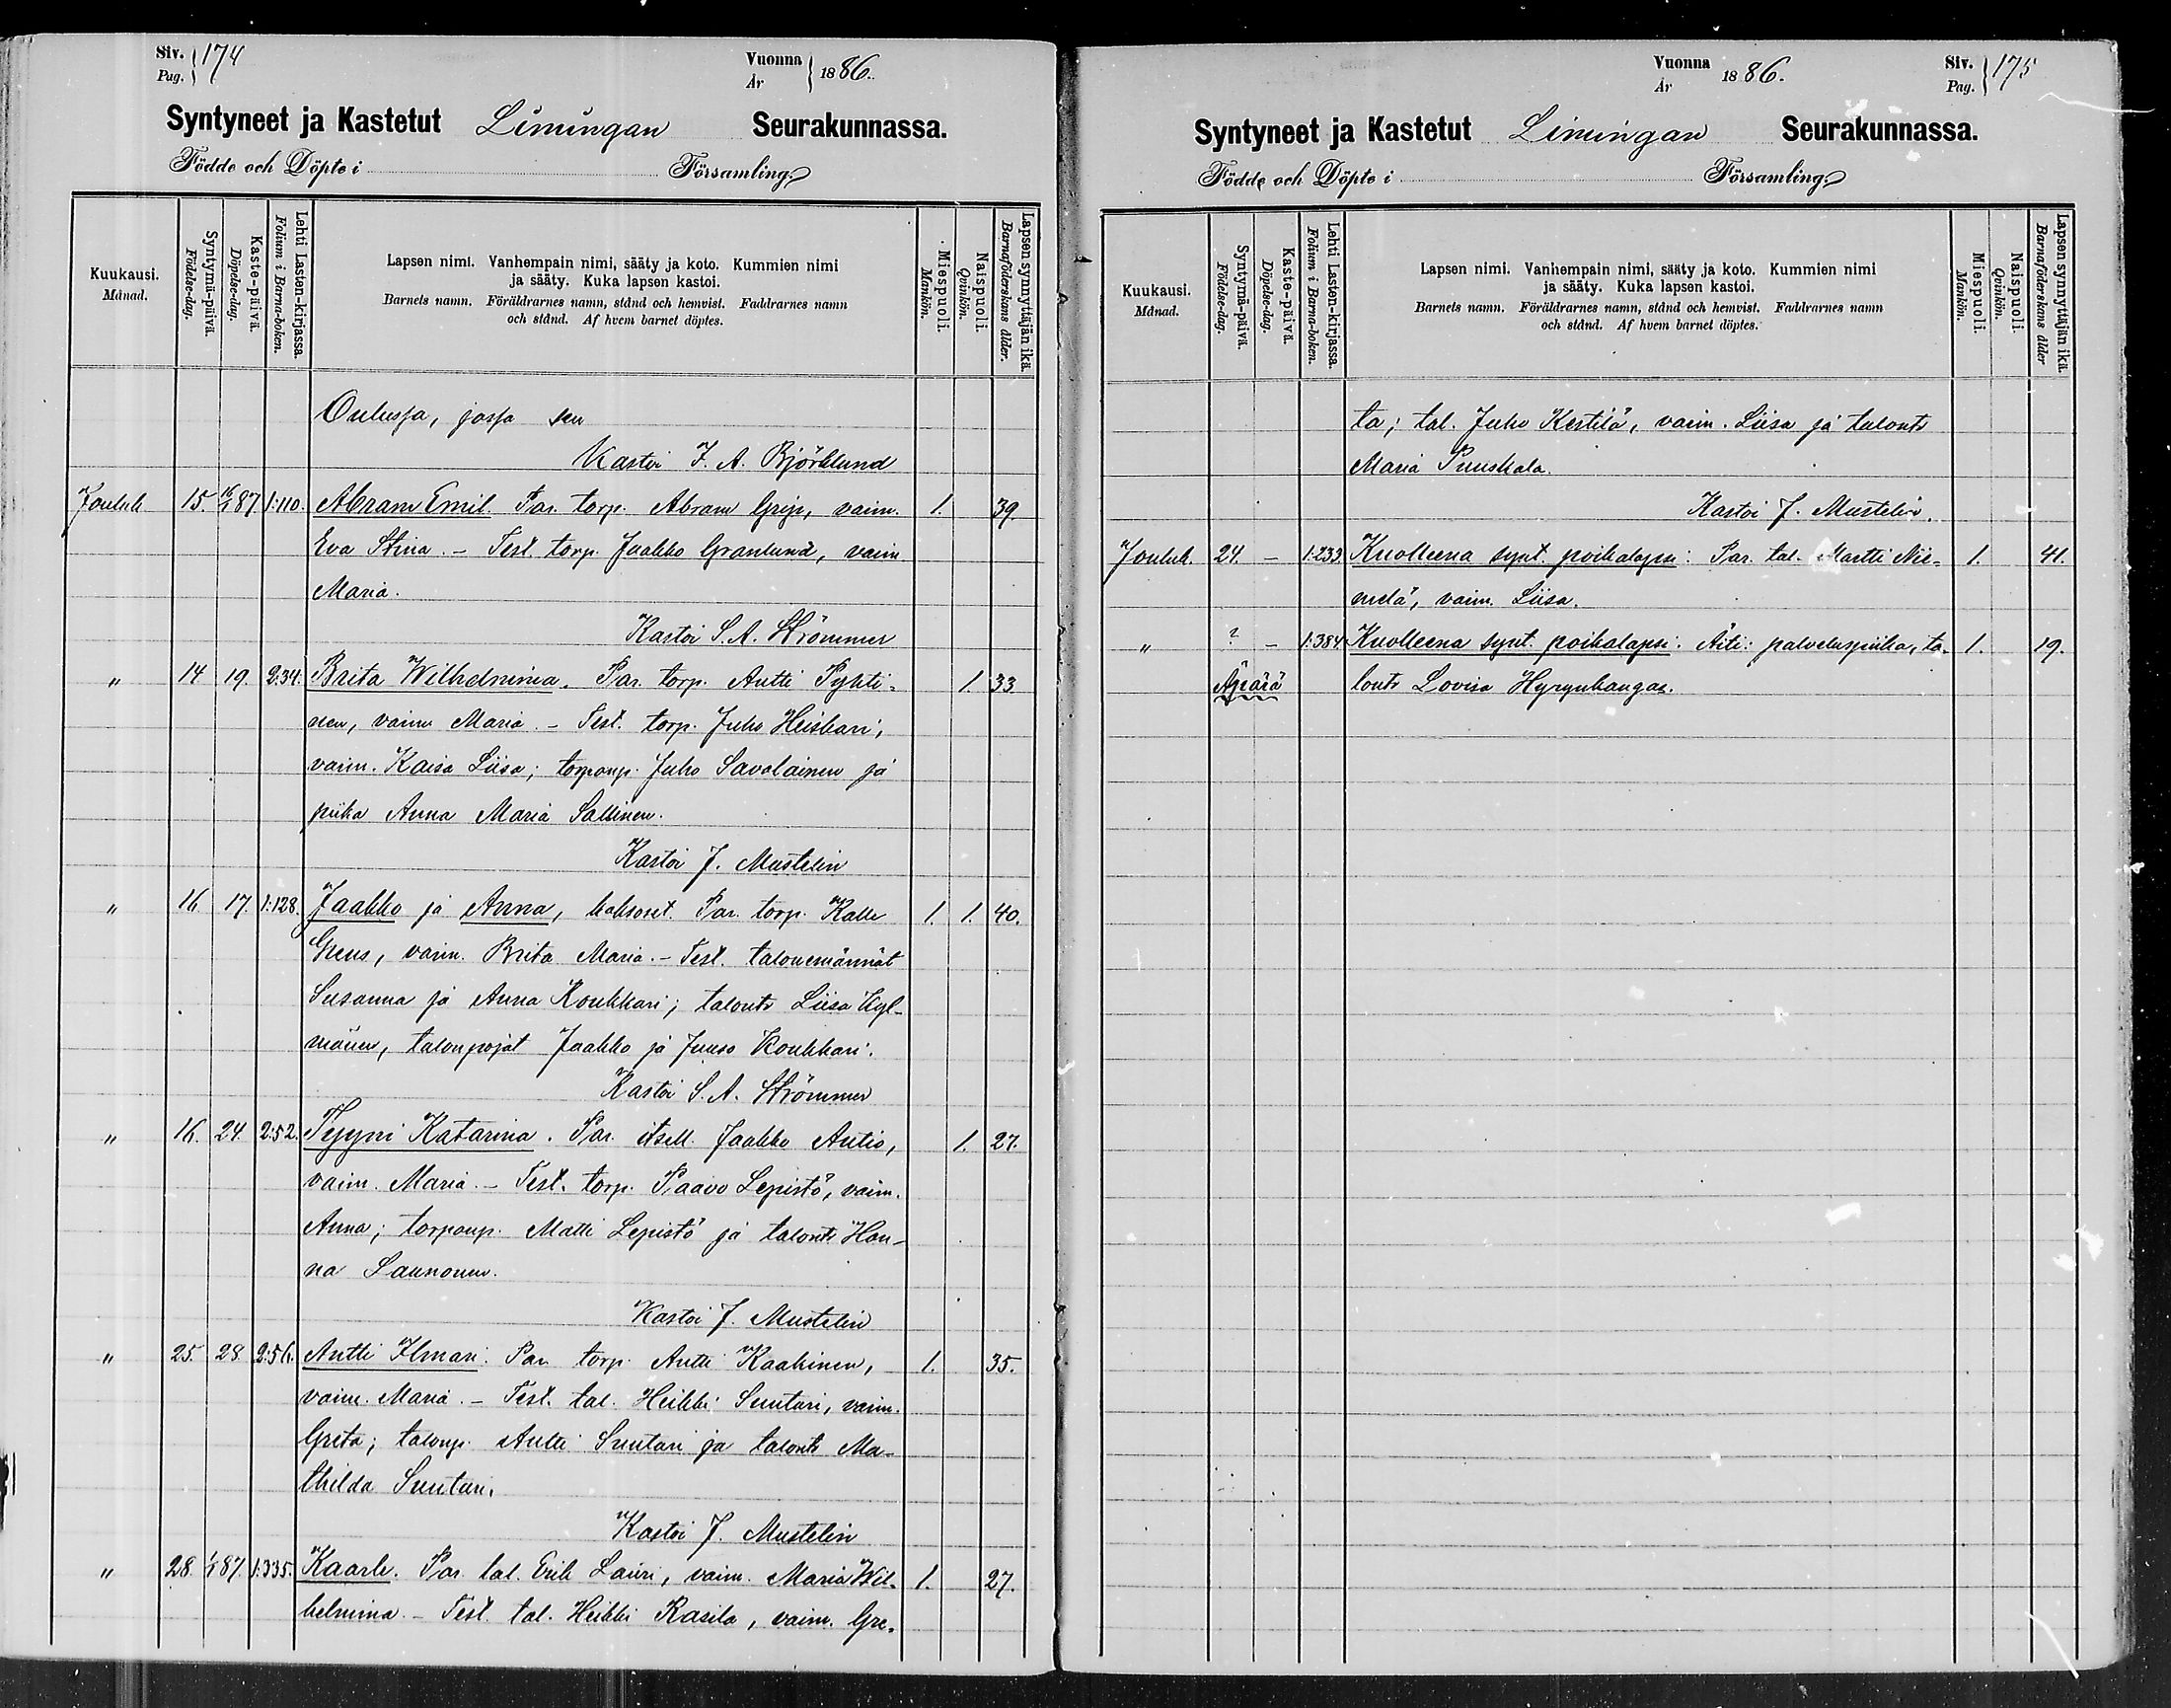 Siv. Pag. 174
Vuonna År 1886.
Syntyneet ja Kastetut Limingan Seurakunnassa.
Födde och Döpte i Församling.
Kuukausi. Månad.
Syntymä-päivä. Födelse-dag.
Kaste-päivä. Döpelse-dag.
Lehti Lasten-kirjassa. Folium i Barna-boken.
Lapsen nimi. Vanhempain nimi, sääty ja koto. Kummien nimi
ja sääty. Kuka lapsen kastoi.
Barnets namn. Föräldrarnes namn, stånd och hemvist. Faddrarnes namn
och stånd. Af hvem barnet döptes.
Miespuoli. Mankön.
Naispuoli. Qvinkön.
Lapsen synnyttäjän ikä. Barnaföderskans ålder.
Oulussa, jossa sen
Kastoi J. A. Björklund
Jouluk 15. 16/1 87. 1:110. Abram Emil. Par. torp. Abram Grip, vaim. 1. 39.
Eva Stina. – Test. torp. Jaakko Granlund, vaim.
Maria.
Kastoi S. A. Strömmer
" 14 19. 2:34. Brita Wilhelmina. Par. torp. Antti Pyhti-
nen, vaimo Maria. – Test. torp. Juho Heiskari,
vaim. Kaisa Liisa; torponp. Juho Savolainen ja
piika Anna Maria Sallinen.
Kastoi J. Mustelin
" 16. 17. 1:128. Jaakko ja Anna, kaksoset. Par. torp. Kalle 1. 1. 40.
Greus, vaim. Brita Maria. – Test. talonemännät
Susanna ja Anna Koukkari; talontr Liisa Kyl-
mänen, talonpojat Jaakko ja Juuso Koukkari.
Kastoi S. A. Strömmer
" 16. 24. 2:52. Tyyni Katarina. Par. itsell. Jaakko Autio, 1. 27.
vaim. Maria. – Test. torp. Paavo Lepistö, vaim.
Anna; torponp. Matti Lepistö ja talontr Han-
na Saunonen.
Kastoi J. Mustelin
" 25. 28. 2:56. Antti Ilmari. Par. torp. Antti Kaakinen, 1. 35.
vaim. Maria. – Test. tal. Heikki Suutari, vaim.
Greta; talonp. Antti Suutari ja talontr Ma-
thilda Suutari.
Kastoi J. Mustelin
" 28. 1/1 87. 1:335. Kaarle. Par. tal. Erik Lauri, vaim. Maria Wil- 1. 27.
helmina. – Test. tal. Heikki Rasila, vaim. Gre-
Vuonna År 1886.
Siv. Pag. 175
Syntyneet ja Kastetut Limingan Seurakunnassa.
Födde och Döpte i Församling.
Kuukausi. Månad.
Syntymä-päivä. Födelse-dag.
Kaste-päivä. Döpelse-dag.
Lehti Lasten-kirjassa. Folium i Barna-boken.
Lapsen nimi. Vanhempain nimi, sääty ja koto. Kummien nimi
ja sääty. Kuka lapsen kastoi.
Barnets namn. Föräldrarnes namn, stånd och hemvist. Faddrarnes namn
och stånd. Af hvem barnet döptes.
Miespuoli. Mankön.
Naispuoli. Qvinkön.
Lapsen synnyttäjän ikä. Barnaföderskans ålder
ta; tal. Juho Kestilä, vaim. Liisa ja talontr
Maria Puuskala.
Kastoi J. Mustelin.
Jouluk. 24. – 1:233. Kuolleena synt. poikalapsi: Par. tal. Martti Nii- 1. 41.
melä, vaim. Liisa.
" ? – 1:384. Kuolleena synt. poikalapsi. Äiti: palveluspiika, ta- 1. 19.
Äpärä lontr Lovisa Hyrynkangas.